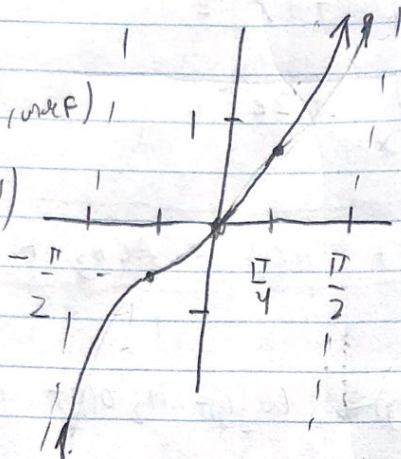 , undef)
1
)
-π/2 π/4 π/2